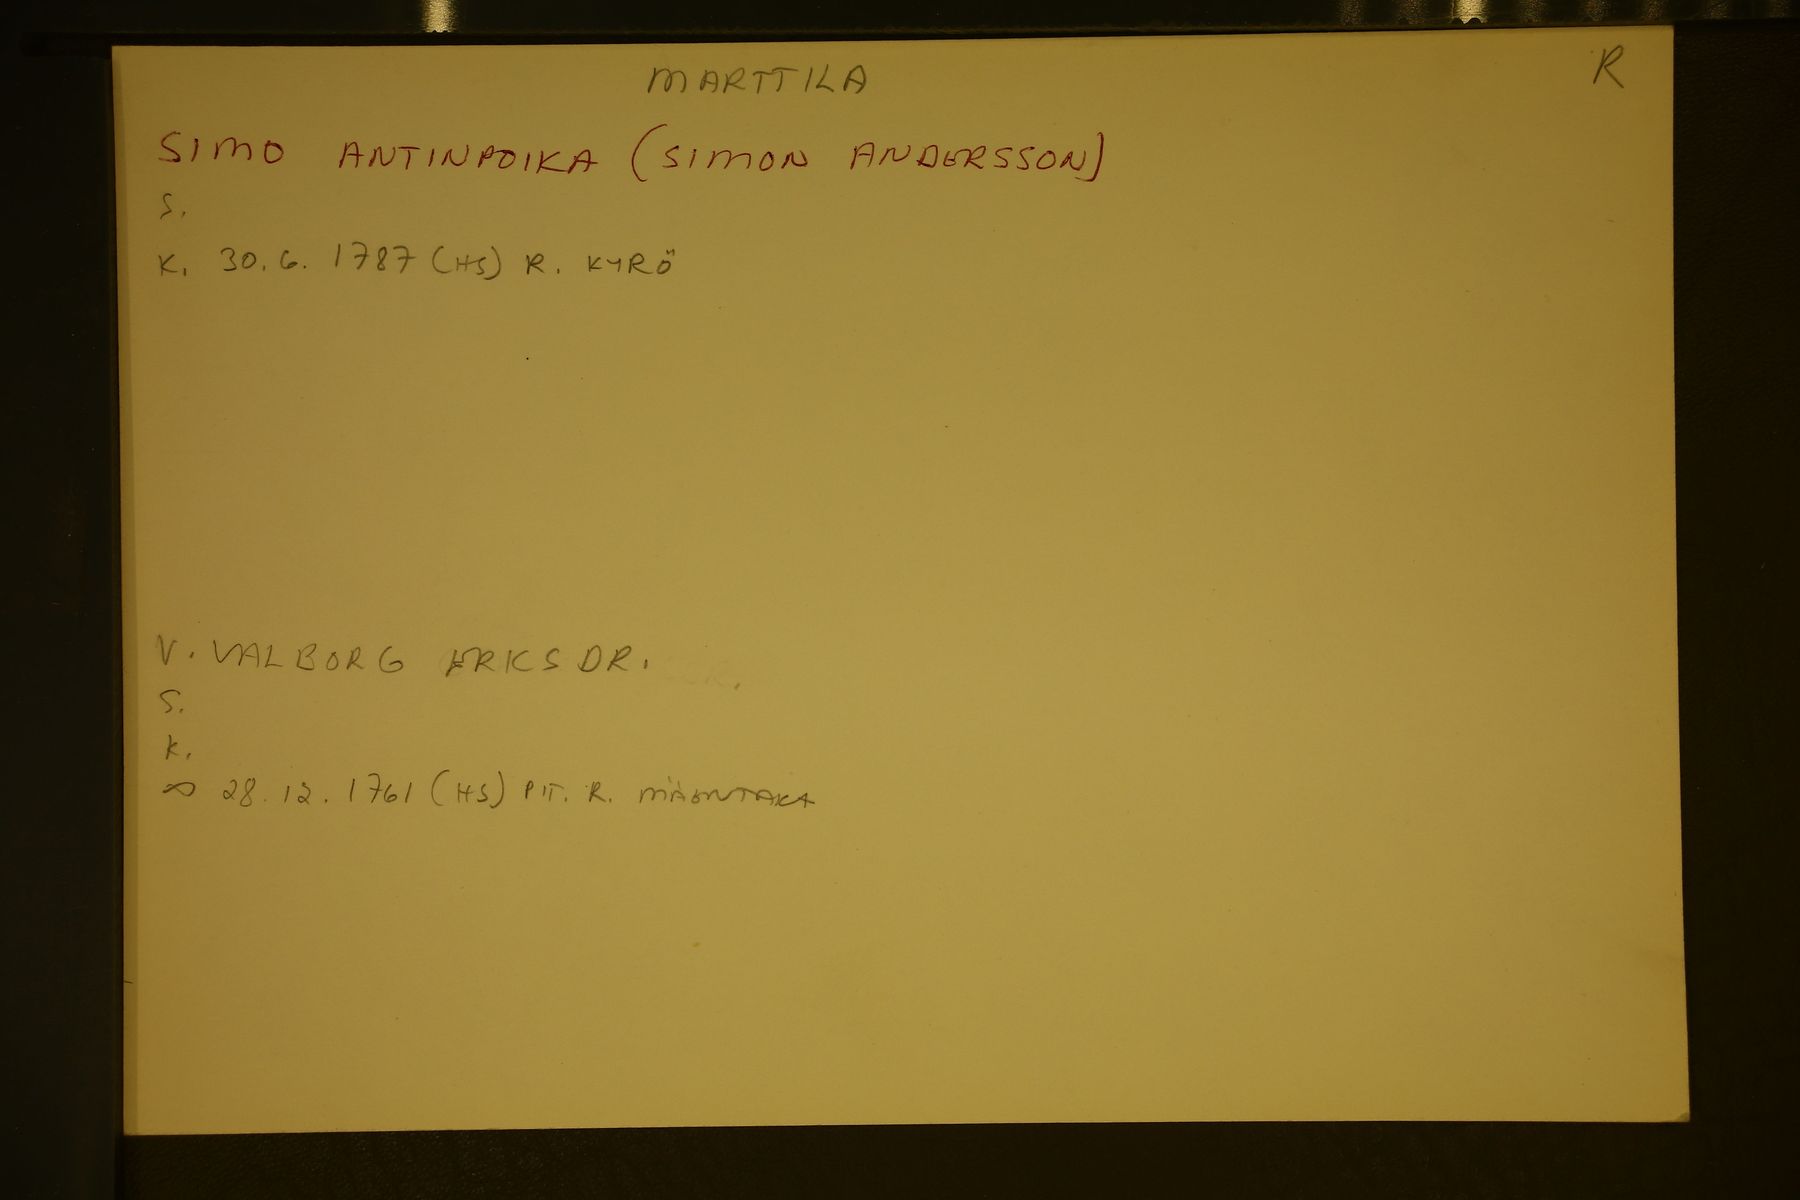 MARTTILA
R
SIMO ANTINPOIKA (SIMON ANDERSSON)
S.
K. 30.6.1787 (HS) R. KYRÖ
V. VALBORG ERIKSDR.
S.
K.
∞ 28.12.1761 (HS) PIT. R. MÄENTAKA